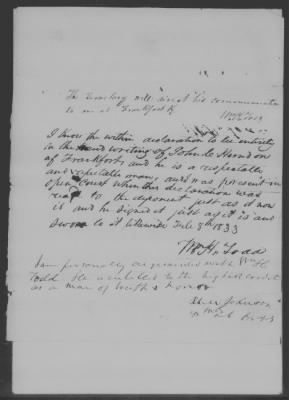 The Secretary will direct his communication
to me at Frankfort Ky
Wm H Todd
I know the within declaration to be entirely
in the hand writing of John C Herndon
of Frankfort, and he is a respectable
and man and was present in
open Court when this declaration was
read to the deponent just as it now
is and he signed it just as it is and
Swore to it likewise Feb 8th 1833
Wm H. Todd
I am personally acquainted with Wm H
Todd He is entitled to the highest credit
as a man of truth & honor
Johnson